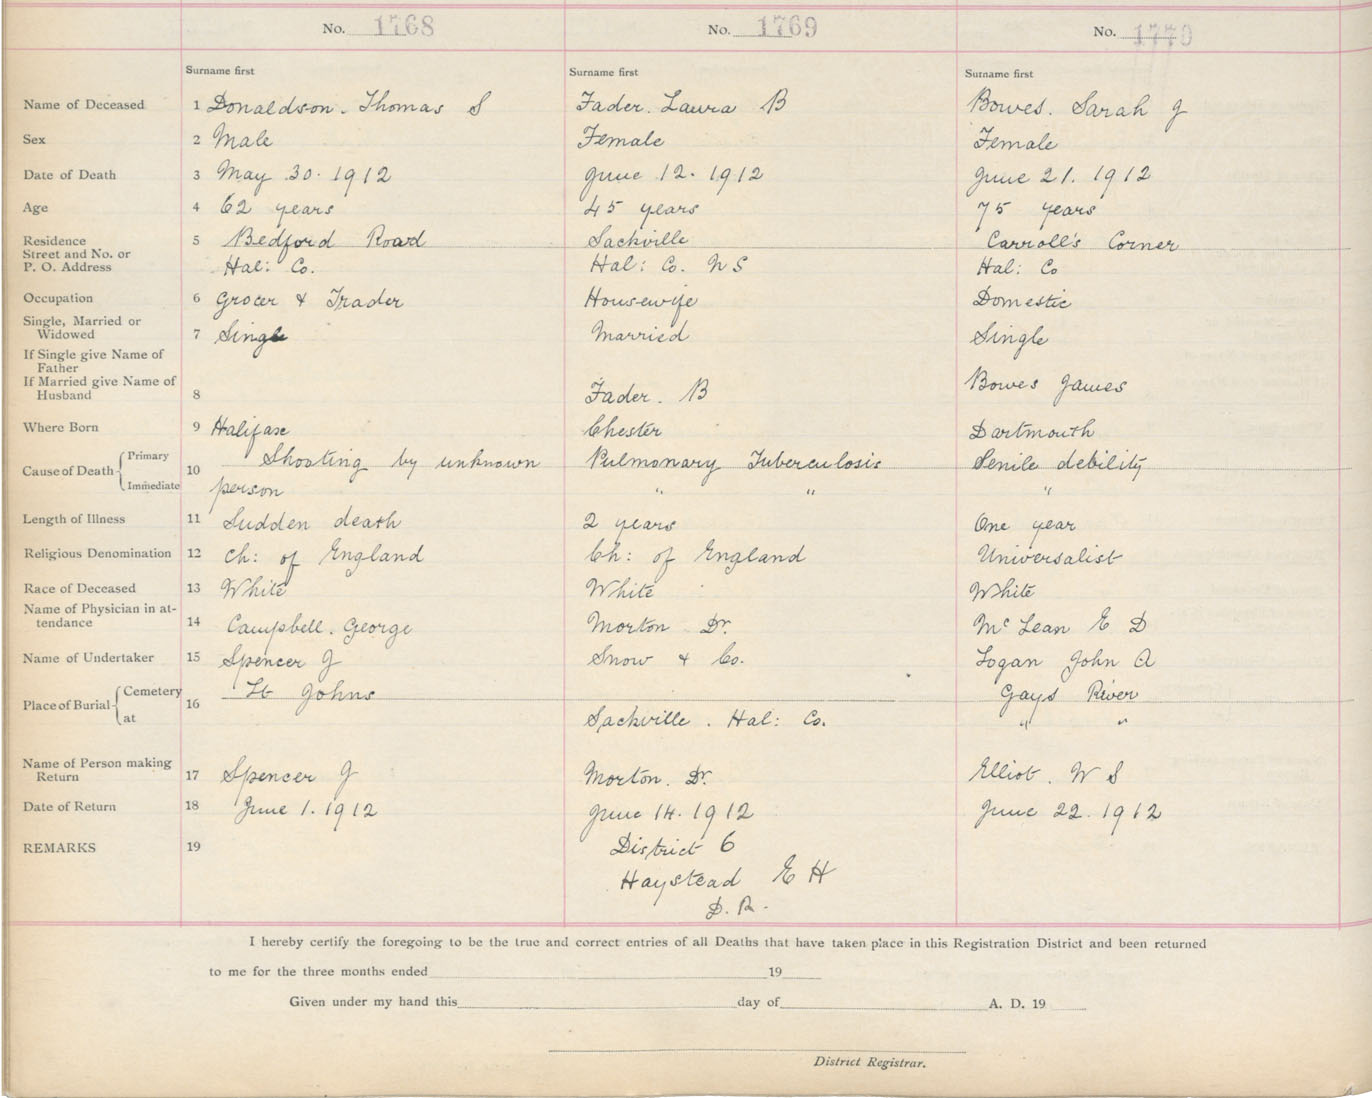 No. 1768 No. 1769 No. 1770
Surname first Surname first Surname first
Name of Deceased 1 Donaldson. Thomas S Fader. Laura B Bowes. Sarah J
Sex 2 Male Female Female
Date of Death 3 May 30. 1912 June 12. 1912 June 21. 1912
Age 4 62 years 45 years 75 years
Residence 5 Bedford Road Sackville Carroll's Corner
Street and No. or
P. O. Address Hal: Co. Hal: Co. N S Hal: Co
Occupation 6 Grocer & Trader Housewife Domestic
Single, Married or
Widowed 7 Single Married Single
If Single give Name of
Father
If Married give Name of Bowes James
Husband 8 Fader. B
Where Born 9 Halifax Chester Dartmouth
Cause of Death Primary 10 Shooting by unknown Pulmonary Tuberculosis Senile debility
Immediate person " " "
Length of Illness 11 Sudden death 2 years One year
Religious Denomination 12 Ch: of England Ch: of England Universalist
Race of Deceased 13 White White White
Name of Physician in at-
tendance 14 Campbell. George Morton Dr. McLean E D
Name of Undertaker 15 Spencer J Snow & Co. Logan John A
Place of Burial Cemetery 16 St Johns Gays River
at Sackville. Hal: Co. " "
Name of Person making
Return 17 Spencer J Morton. Dr. Elliot. W S
Date of Return 18 June 1. 1912 June 14. 1912 June 22. 1912
REMARKS 19 District 6
Haystead E H
D. R.
I hereby certify the foregoing to be the true and correct entries of all Deaths that have taken place in this Registration District and been returned
to me for the three months ended 19
Given under my hand this day of A. D. 19
District Registrar.